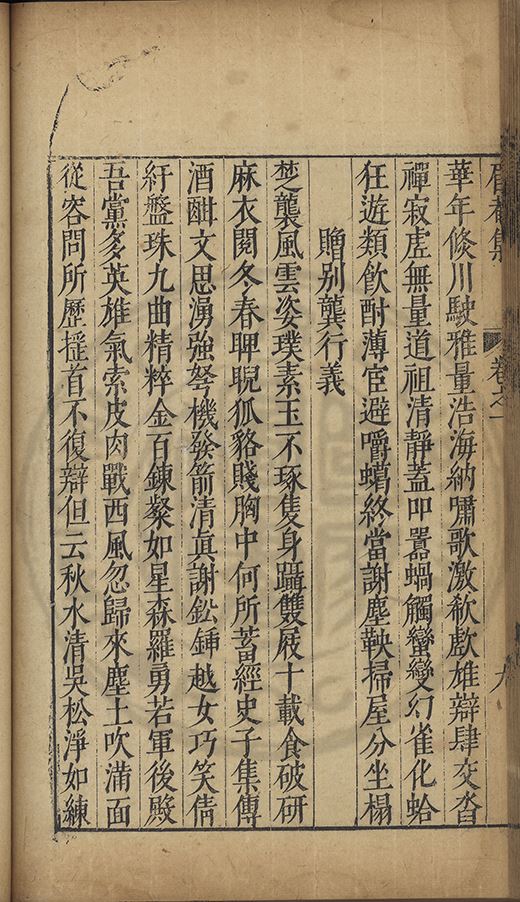 眉菴集 卷之一 九
華年倏川駛雅量浩海納嘯歌激欷歔雄辯肆交沓
禪寂虛無量道祖清靜蓋叩囂蝸觸蠻變幻雀化蛤
狂遊類飲酎薄宦避嚼蠟終當謝塵鞅掃屋分坐榻
贈別龔行義
楚襲風雲姿璞素玉不琢隻身躡雙屐十載食破研
麻衣閱冬春睥睨狐貉賤胸中何所蓄經史子集傳
酒酣文思湧強弩機發箭清真謝鉛錘越女巧笑倩
紆盤珠九曲精粹金百鍊粲如星森羅勇若軍後殿
吾黨多英雄氣索皮肉戰西風忽歸來塵土吹滿面
從容問所歷搖首不復辯但云秋水清吳松淨如練